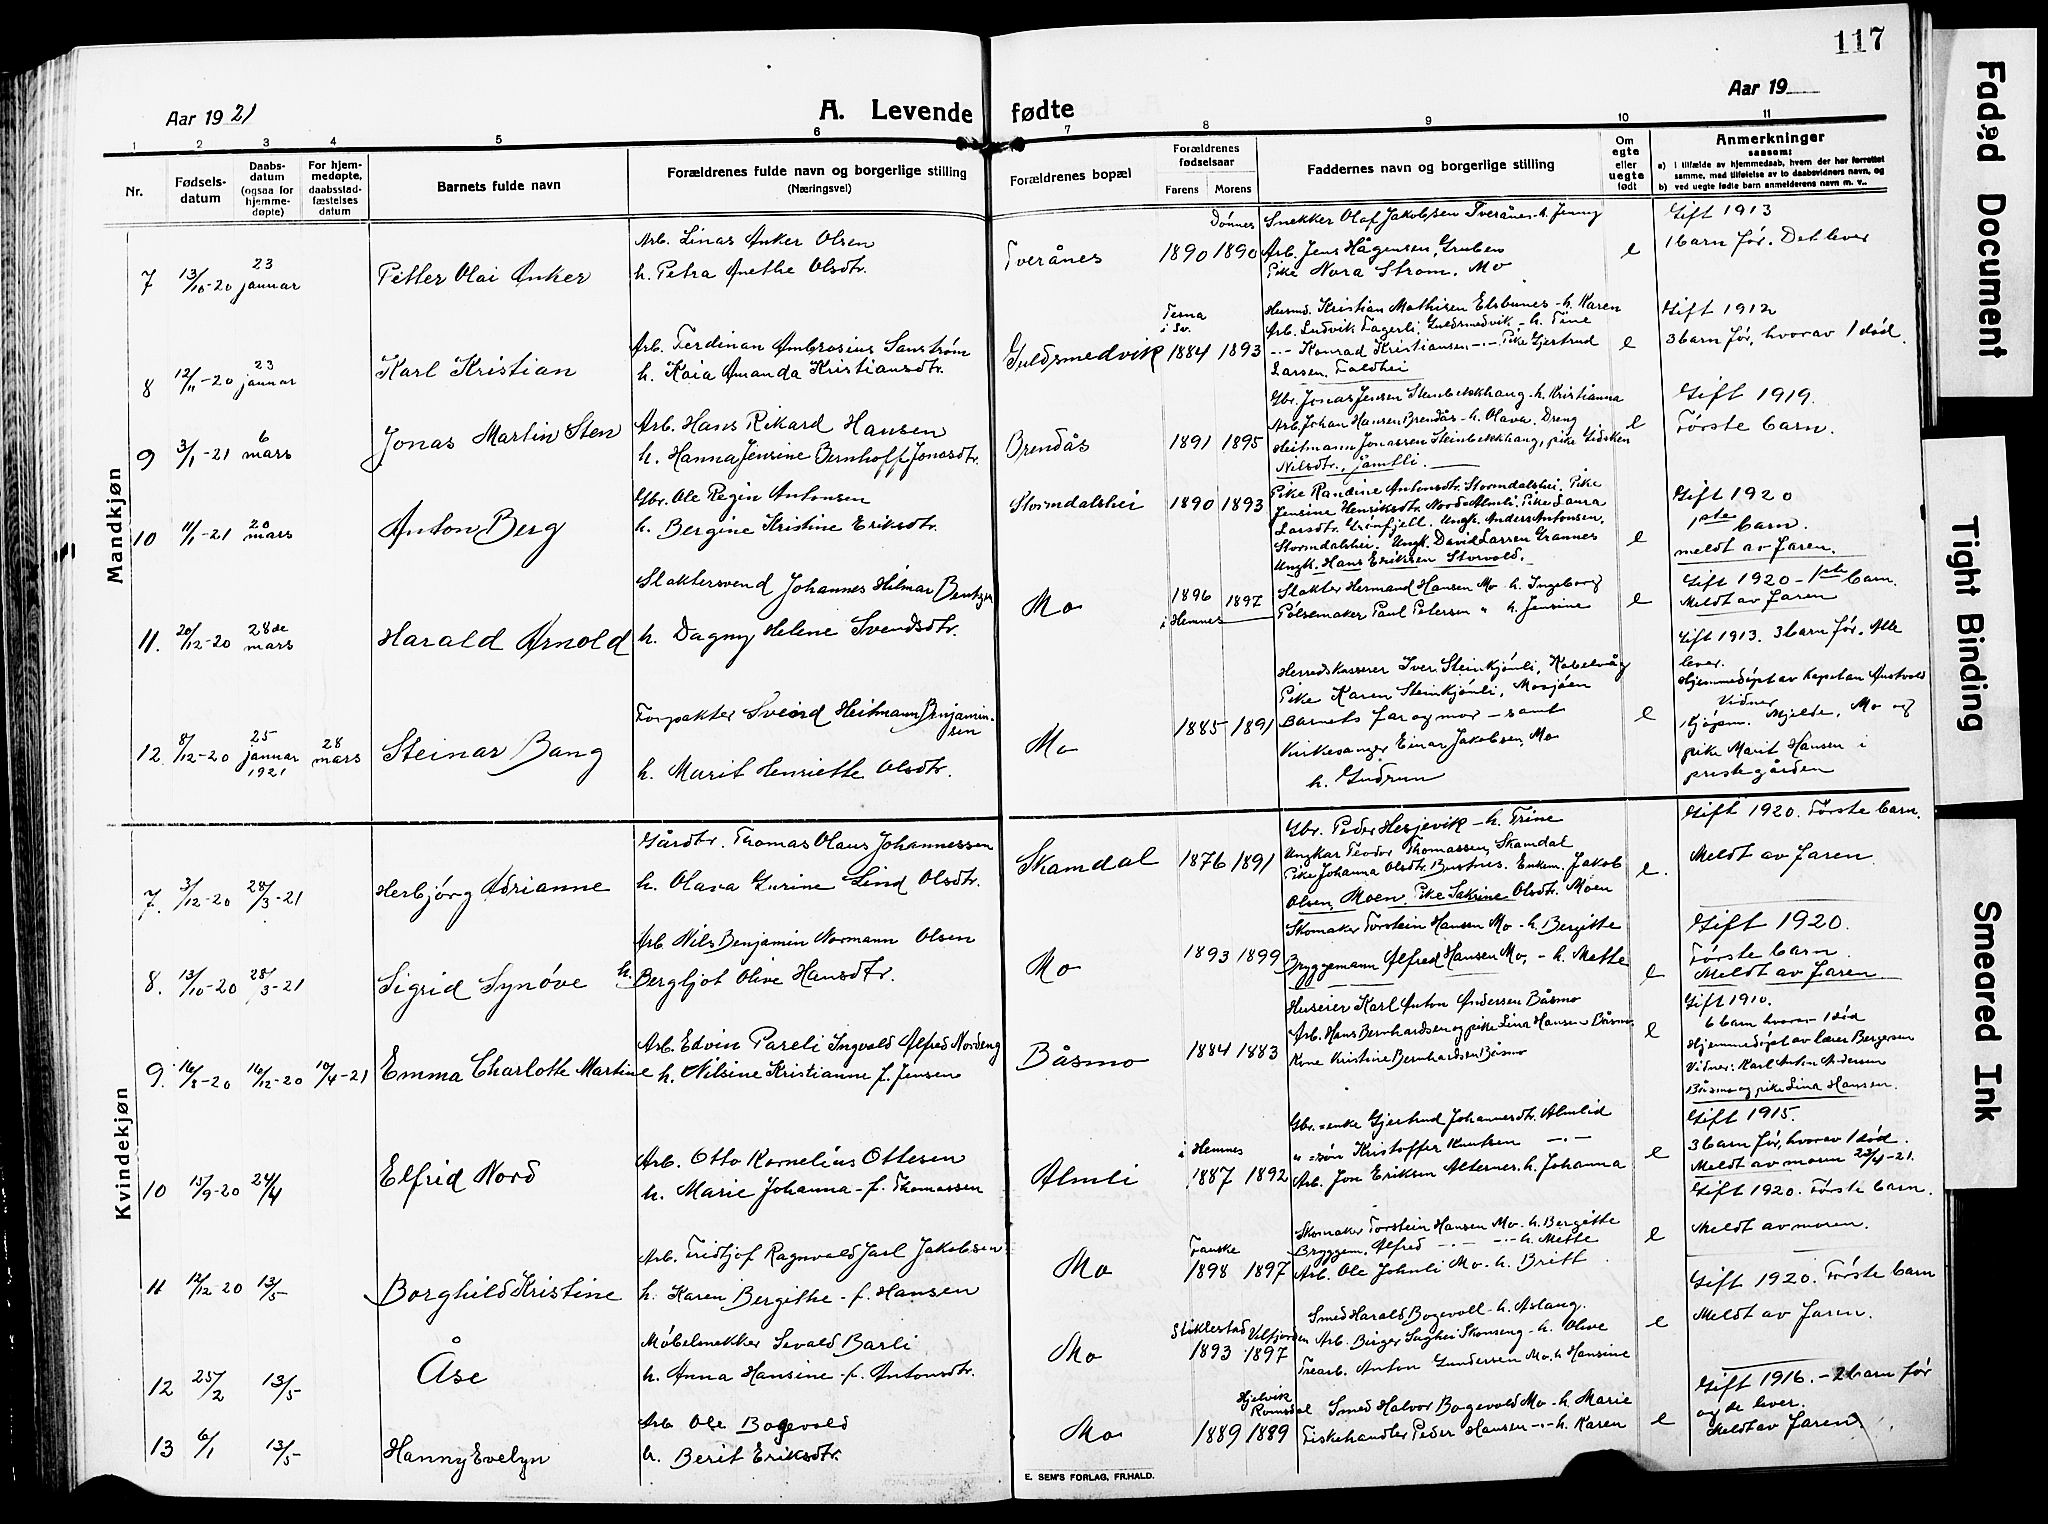 117
Aar 1921
A. Levende
fødte
Aar 19
1 2 3 4 5 6 7 8 9 10 11
Nr.
Fødsels-
datum
Daabs-
datum
(ogsaa for
hjemme-
døpte)
For hjem-
medøpte,
daabsstad-
fæstelses
datum
Barnets fulde navn
Forældrenes fulde navn og borgerlige stilling
(Næringsvei)
Forældrenes bopæl
Forældrenes
fødselsaar
Farens Morens
Faddernes navn og borgerlige stilling
Om
egte
eller
uegte
født
Anmerkninger
saasom:
a) i tilfælde av hjemmedaab, hvem der har forrettet
samme, med tilføielse av to daabsvidners navn, og
b) ved uegte fødte barn anmelderens navn m. v..
Mandkjøn
7 13/10-20 23 januar
Petter Olai Anker
Arb. Linas Anker Olsen
h. Petra Anethe Olsdtr.
Tverånes
Dönnes
1890 1890
Snekker Olaf Jakobsen Tverånes- h. Jenny
Arb. Jens Hågensen, Gruben
Pike Nora Strøm, Mo
e
Gift 1913
1 barn før. Det lever
8 12/11-20 23 januar
Karl Kristian
Arb. Ferdinan Ambrosius Sanstrøm
h. Kaia Amanda Kristiansdtr.
Guldsmedvik
Terna
i Sv.
1884 1893
Husmd. Kristian Mathisen Elsbunes - h. Karen
Arb. Ludvik Fagerli, Guldsmedvik - h. Tine
-"- Konrad Kristiansen -"- Pike Gjertrud
Larsen,
e
Gift 1912
3 barn før, hvorav 1 død.
9 3/1-21 6 mars
Jonas Martin Sten
Arb. Hans Rikard Hansen
h. Hanna Jensine Bernhoff Jonasdtr.
Brendås
1891 1895
Gbr. Jonas Jensen Stenbekkhaug - h. Kristianna
Arb. Johan Hansen Brendås - h. Olava. Dreng
Heitmann Jonassen Steinbekkhaug, pike Lidsken
Nilsdtr., Jamtli.
e
Gift 1919.
Første barn.
10 11/1-21 20 mars
Anton Berg
Gbr. Ole Regin Antonsen
h. Bergine Kristine Eriksdtr.
Stormdalshei
1890 1893
Pike Randine Antonsdtr. Stormdalshei. Pike
Jensine Henriksdtr. Almli. Pike Laura
Larsdtr. Grönfjell. Ungk. Anders Antonsen,
Stormdalshei. Ungk. David Larsen Grannes
Ungk. Hans Eriksen Storvold.
e
Gift 1920
1ste barn.
meldt av faren.
11. 20/12-20 28de mars
Harald Arnold
Slaktersvend Johannes Hilmar Bentzen
h. Dagny Helene Svendsdtr.
Mo
1896 1897
i Hemnes
Slakter Hermand Hansen Mo - h. Ingeborg
Pölsemaker Paul Petersen " h. Jensine
e
Gift 1920 - 1ste barn.
Meldt av faren
12. 8/12-20 25 januar 1921 28 mars
Steinar Bang
Forpakter Sveind Heitmann Benjamin-
sen
h. Marit Henriette Olsdtr.
Mo
1885 1891
Herredskasserer Iver Steinkjönli, Kabelvåg
Pike Karen Steinkjönli, Mosjöen
Barnets far og mor - samt
Kirkesanger Einar Jakobsen, Mo
h. Gudrun
e
Gift 1913. 3 barn før. Alle
lever.
Hjemmedöpt av kapelan
Vidner
Kjöpm. Mjelde, Mo og
pike Marit Hansen i
prestegården
Kvindekjøn
7. 3/12-20 28/3-21
Herbjörg Adrianne
Gårdbr. Thomas Olaus Johannessen
h. Olava Gurine Lind Olsdtr.
Skamdal
1876 1891
Gbr. Peder Hesjevik - h. Trine
Ungkar Teodor Thomassen, Skamdal
Pike Johanna Olsdtr. Bustnes. Enkem. Jakob
Olsen, Moen. Pike Sakrine Olsdtr. Moen
e.
Gift 1920. Første barn.
Meldt av faren.
8. 13/10-20 28/3-21
Sigrid Synöve
Arb. Nils Benjamin Normann Olsen
h. Bergljot Olive Hansdtr.
Mo
1893 1899
Skomaker Torstein Hansen Mo - h. Bergitte
Bryggemann Alfred Hansen Mo, - h. Mette
e
Gift 1920.
Første barn
Meldt av faren
9. 16/8-20 16/12-20 10/4-21
Emma Charlotte Martine
Arb. Edvin Pareli Ingvald Alfred Nordeng
h. Nilsine Kristianne f. Jensen
Båsmo
1884 1883
Huseier Karl Anton Andersen Båsmo
Arb. Hans Bernhardsen og pike Lina Hansen Båsmo
Kone Kristine Bernhardsen Båsmo
e
Gift 1910.
6 barn hvorav 1 död
Hjemmedöpt av lærer Bergersen
Vidner: Karl Anton Andersen
Båsmo og pike Lina Hansen.
10 15/9-20 24/4
Elfrid Nord
Arb. Otto Kornelius Ottesen
h. Marie Johanna - f. Thomassen
Almli
i Hemnes
1887 1892
Gbr.=enke Gjertrud Johannesdtr. Almlid
" =sön Kristoffer Knutsen -"-
Arb. Jon Eriksen Alternes. h. Johanna
e
Gift 1915.
3 barn før, hvorav 1 död.
Meldt av moren 23/4-21.
11 12/12-20 13/5
Borghild Kristine
Arb. Fridtjof Ragnvald Jarl Jakobsen
h. Karen Bergithe - f. Hansen
Mo
Fauske
1898 1897
Skomaker Torstein Hansen Mo - h. Bergitte
Bryggem. Alfred -"- -"- h. Mette
Arb. Ole Johnli Mo - h. Britt
e
Gift 1920. Første barn.
Meldt av moren.
12 25/2 13/5
Åse
Möbelsnekker Sevald Barli
h. Anna Hansine - f. Antonsdtr.
Mo
Stiklestad Velfjorden
1893 1897
Smed Harald Bogevoll - h. Aslaug.
Arb. Birger Skonseng - h. Olive
Trearb. Anton Gundersen Mo. h. Hansine
e
Gift 1920. Første barn
Meldt av faren.
13 6/1 13/5
Hanny Evelyn
Arb. Ole Bogevold
h. Berit Eriksdtr.
Mo
Hjelvik
Romsdal
1889 1889
Smed Halvor Bogevold Mo - h. Marie
Fiskehandler Peder Hansen -"- h. Karen
e
Gift 1916. - 2 barn før
og de lever.
Meldt av faren.
E. SEM'S FORLAG, FR.HALD.
Faded Document
Tight Binding
Smeared Ink